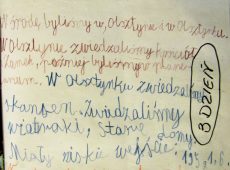 W środę byliśmy w Olsztynie i w Olsztynku.
W Olsztynie zwiedzaliśmy kościół
Zamek, później byliśmy w plane-
W Olsztynku zwiedzal
skansen. Zwiedzaliśmy
wiatraki, stare domy.
Miały niskie wejście.
3 DZIEŃ